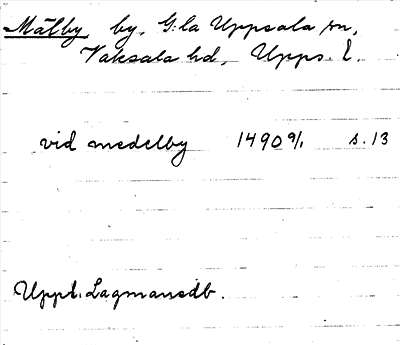 Mälby by, G:la Uppsala sn,
Vaksala hd, Upps. l.
vid medelby 1490 9/1 s. 13
Uppl. Lagmansdb.